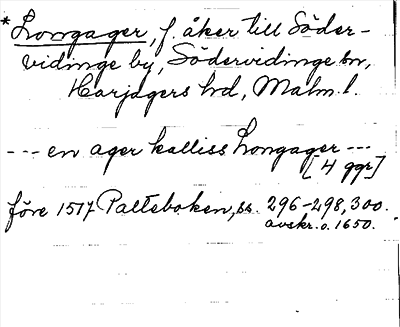 *Longager, f. åker till Söder-
vidinge by, Södervidinge sn,
Harjagers hd, Malm. l.
--- en ager kalliss Longager ---
[4 ggr]
före 1517 Palteboken, ss. 296-298, 300.
avskr. o. 1650.